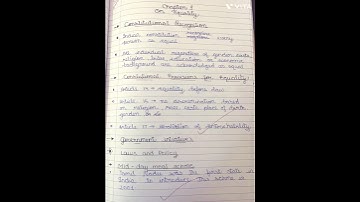 Chapter 1
On Equality
Constitutional Recognition
Indian constitution recognises every
person as equal
All individual regardless of gender caste
religion tribe education or economic
background are acknowledged as equal
Constitutional Provisions for Equality:
Article 14 → equality before law
Article 15 → No discrimination based
on religion race caste place of birth
gender
Article 17 → abolition of untouchability
Government
Laws and Policy
Mid-day meal scheme
Tamil Nadu was the first state in
India to introduce this scheme in